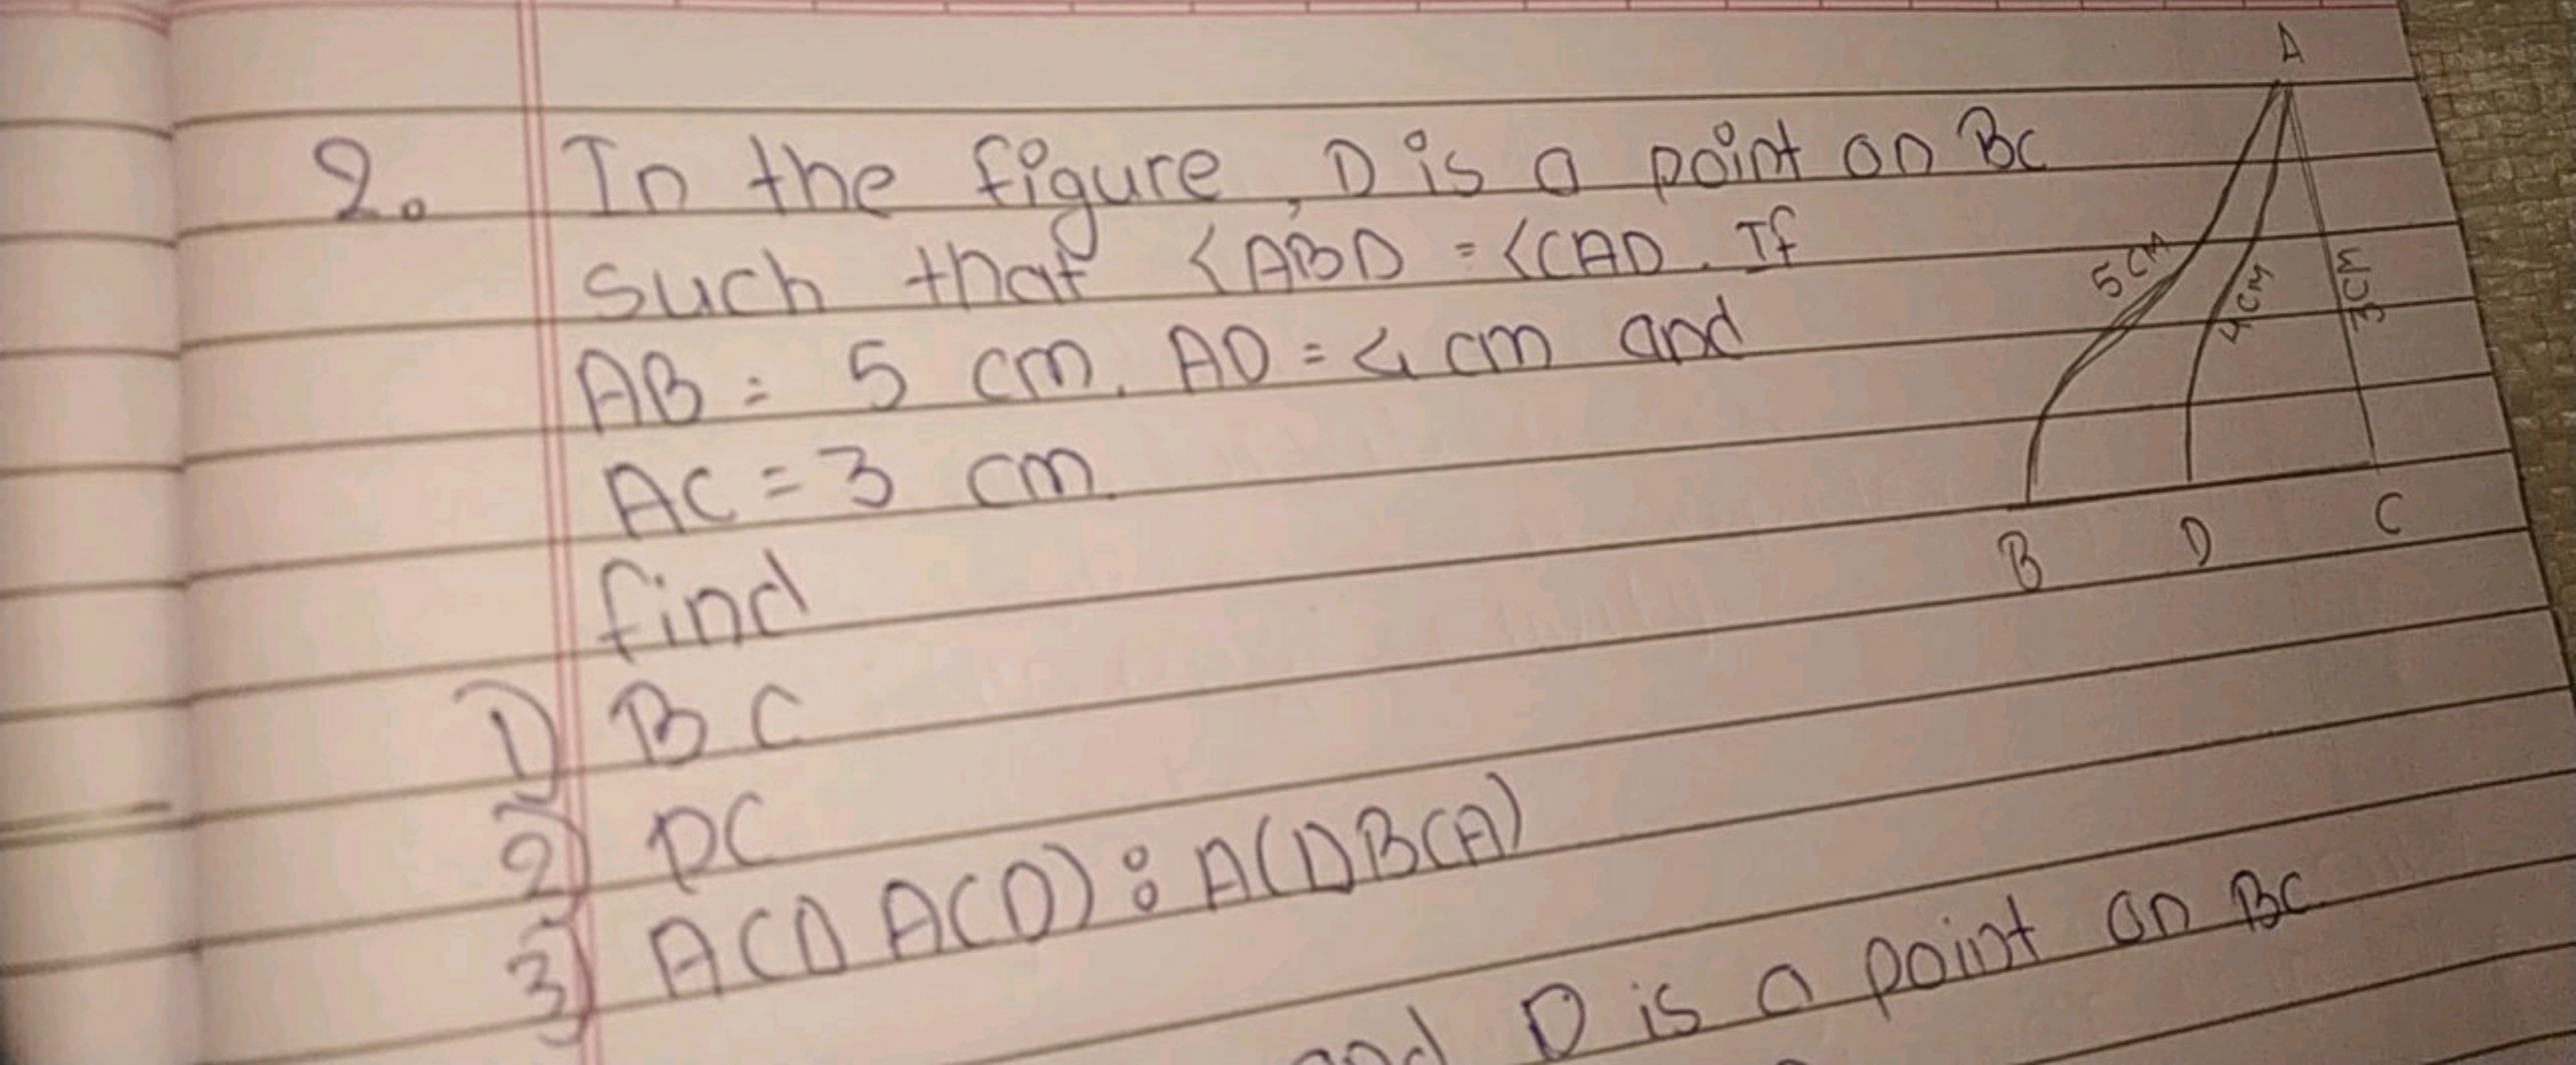 2. In the figure, D is a point on BC
such that <ABD = <CAD. If
AB = 5 cm. AD = 4 cm and
AC = 3 cm.
find
1) BC
2) DC
3) A(D ACD) : A(DBCA)
A
5 CM
4CM
3CM
B D C
and D is a point on BC